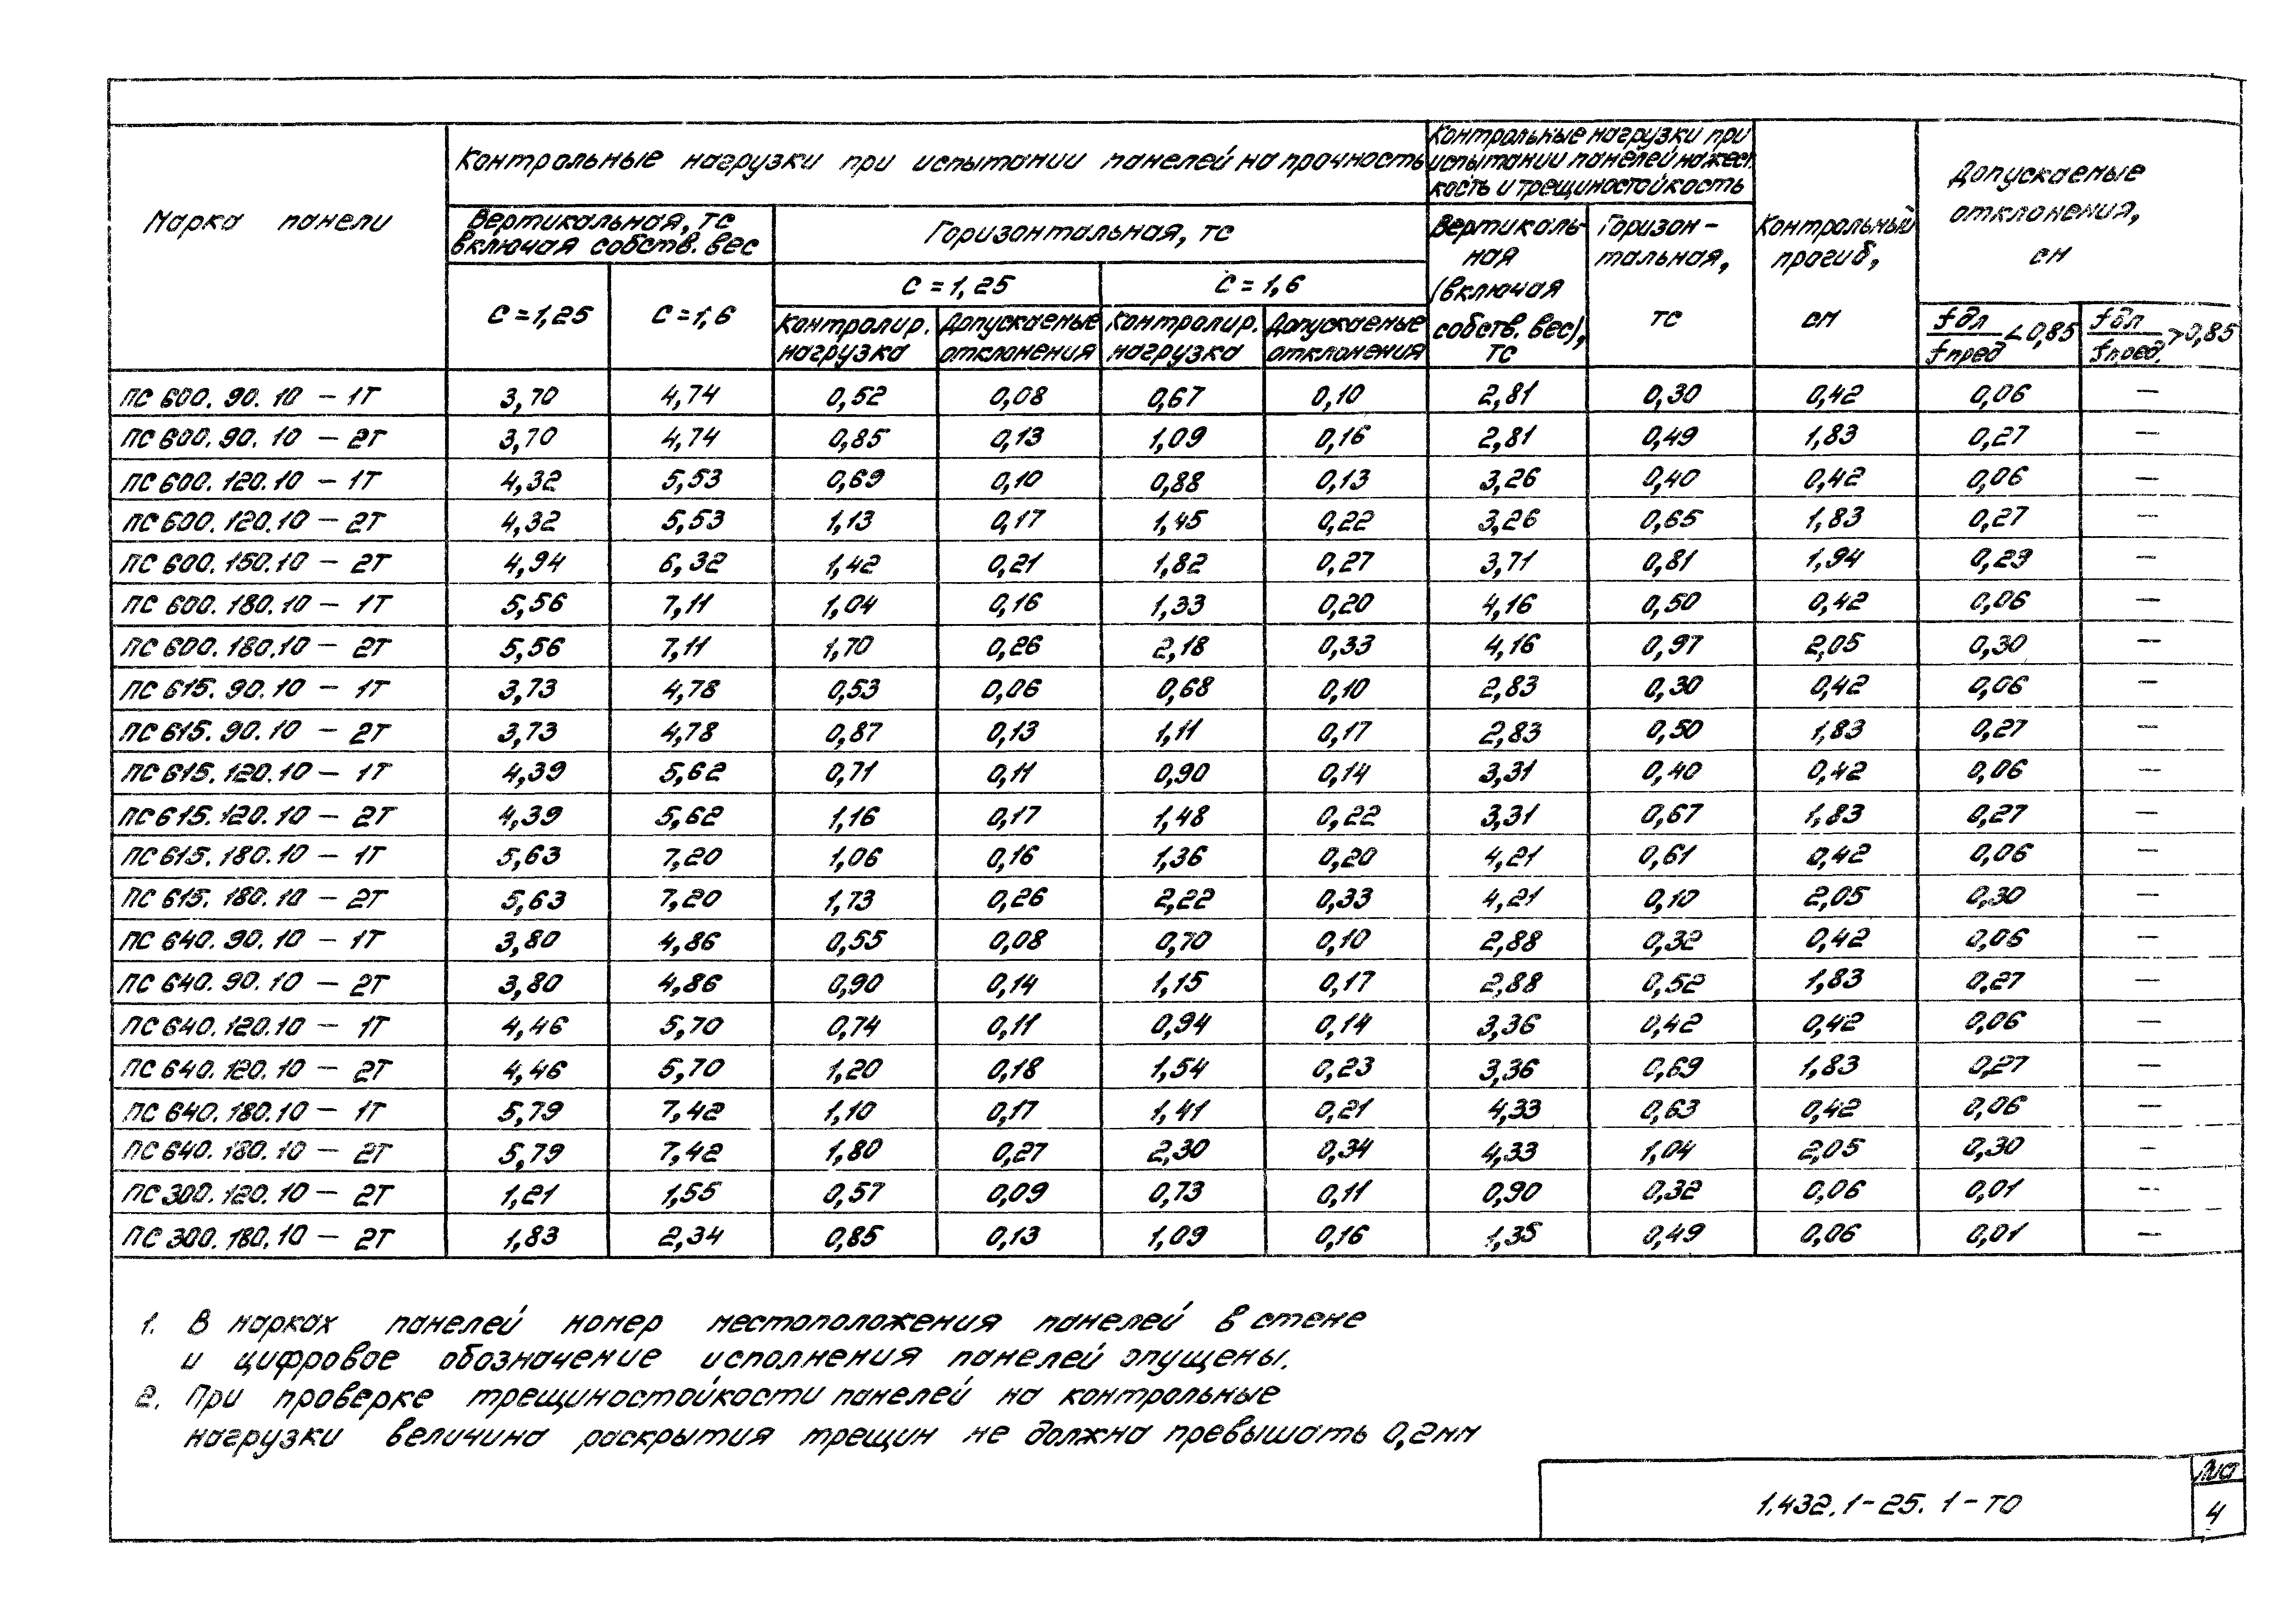 Марка панели
Контрольные нагрузки при испытании панелей на прочность
Контрольные нагрузки при
испытании панелей на жест
кость и трещиностойкость
Контрольный
прогиб,
см
Допускаемые
отклонения,
см
Вертикальная, тс
включая собств. вес
Горизонтальная, тс
Вертикаль-
ная
(включая
собств. вес),
тс
Горизон-
тальная,
тс
С = 1,25 С = 1,6
С = 1,25 С = 1,6
Контролир. нагрузка Допускаемые отклонения Контролир. нагрузка Допускаемые отклонения
fдл/fпред < 0,85 fдл/fпред. > 0,85
ПС 600.90.10 – 1Т 3,70 4,74 0,52 0,08 0,67 0,10 2,81 0,30 0,42 0,06 –
ПС 600.90.10 – 2Т 3,70 4,74 0,85 0,13 1,09 0,16 2,81 0,49 1,83 0,27 –
ПС 600.120.10 – 1Т 4,32 5,53 0,69 0,10 0,88 0,13 3,26 0,40 0,42 0,06 –
ПС 600.120.10 – 2Т 4,32 5,53 1,13 0,17 1,45 0,22 3,26 0,65 1,83 0,27 –
ПС 600.150.10 – 2Т 4,94 6,32 1,42 0,21 1,82 0,27 3,71 0,81 1,94 0,29 –
ПС 600.180.10 – 1Т 5,56 7,11 1,04 0,16 1,33 0,20 4,16 0,50 0,42 0,06 –
ПС 600.180.10 – 2Т 5,56 7,11 1,70 0,26 2,18 0,33 4,16 0,97 2,05 0,30 –
ПС 615.90.10 – 1Т 3,73 4,78 0,53 0,06 0,68 0,10 2,83 0,30 0,42 0,06 –
ПС 615.90.10 – 2Т 3,73 4,78 0,87 0,13 1,11 0,17 2,83 0,50 1,83 0,27 –
ПС 615.120.10 – 1Т 4,39 5,62 0,71 0,11 0,90 0,14 3,31 0,40 0,42 0,06 –
ПС 615.120.10 – 2Т 4,39 5,62 1,16 0,17 1,48 0,22 3,31 0,67 1,83 0,27 –
ПС 615.180.10 – 1Т 5,63 7,20 1,06 0,16 1,36 0,20 4,21 0,61 0,42 0,06 –
ПС 615.180.10 – 2Т 5,63 7,20 1,73 0,26 2,22 0,33 4,21 0,10 2,05 0,30 –
ПС 640.90.10 – 1Т 3,80 4,86 0,55 0,08 0,70 0,10 2,88 0,32 0,42 0,06 –
ПС 640.90.10 – 2Т 3,80 4,86 0,90 0,14 1,15 0,17 2,88 0,52 1,83 0,27 –
ПС 640.120.10 – 1Т 4,46 5,70 0,74 0,11 0,94 0,14 3,36 0,42 0,42 0,06 –
ПС 640.120.10 – 2Т 4,46 5,70 1,20 0,18 1,54 0,23 3,36 0,69 1,83 0,27 –
ПС 640.180.10 – 1Т 5,79 7,42 1,10 0,17 1,41 0,21 4,33 0,63 0,42 0,06 –
ПС 640.180.10 – 2Т 5,79 7,42 1,80 0,27 2,30 0,34 4,33 1,04 2,05 0,30 –
ПС 300.120.10 – 2Т 1,21 1,55 0,57 0,09 0,73 0,11 0,90 0,32 0,06 0,01 –
ПС 300.180.10 – 2Т 1,83 2,34 0,85 0,13 1,09 0,16 1,35 0,49 0,06 0,01 –
1. В марках панелей номер местоположения панелей в стене
и цифровое обозначение исполнения панелей опущены.
2. При проверке трещиностойкости панелей на контрольные
нагрузки величина раскрытия трещин не должна превышать 0,2мм
1.432.1-25.1-ТО
Лист
4